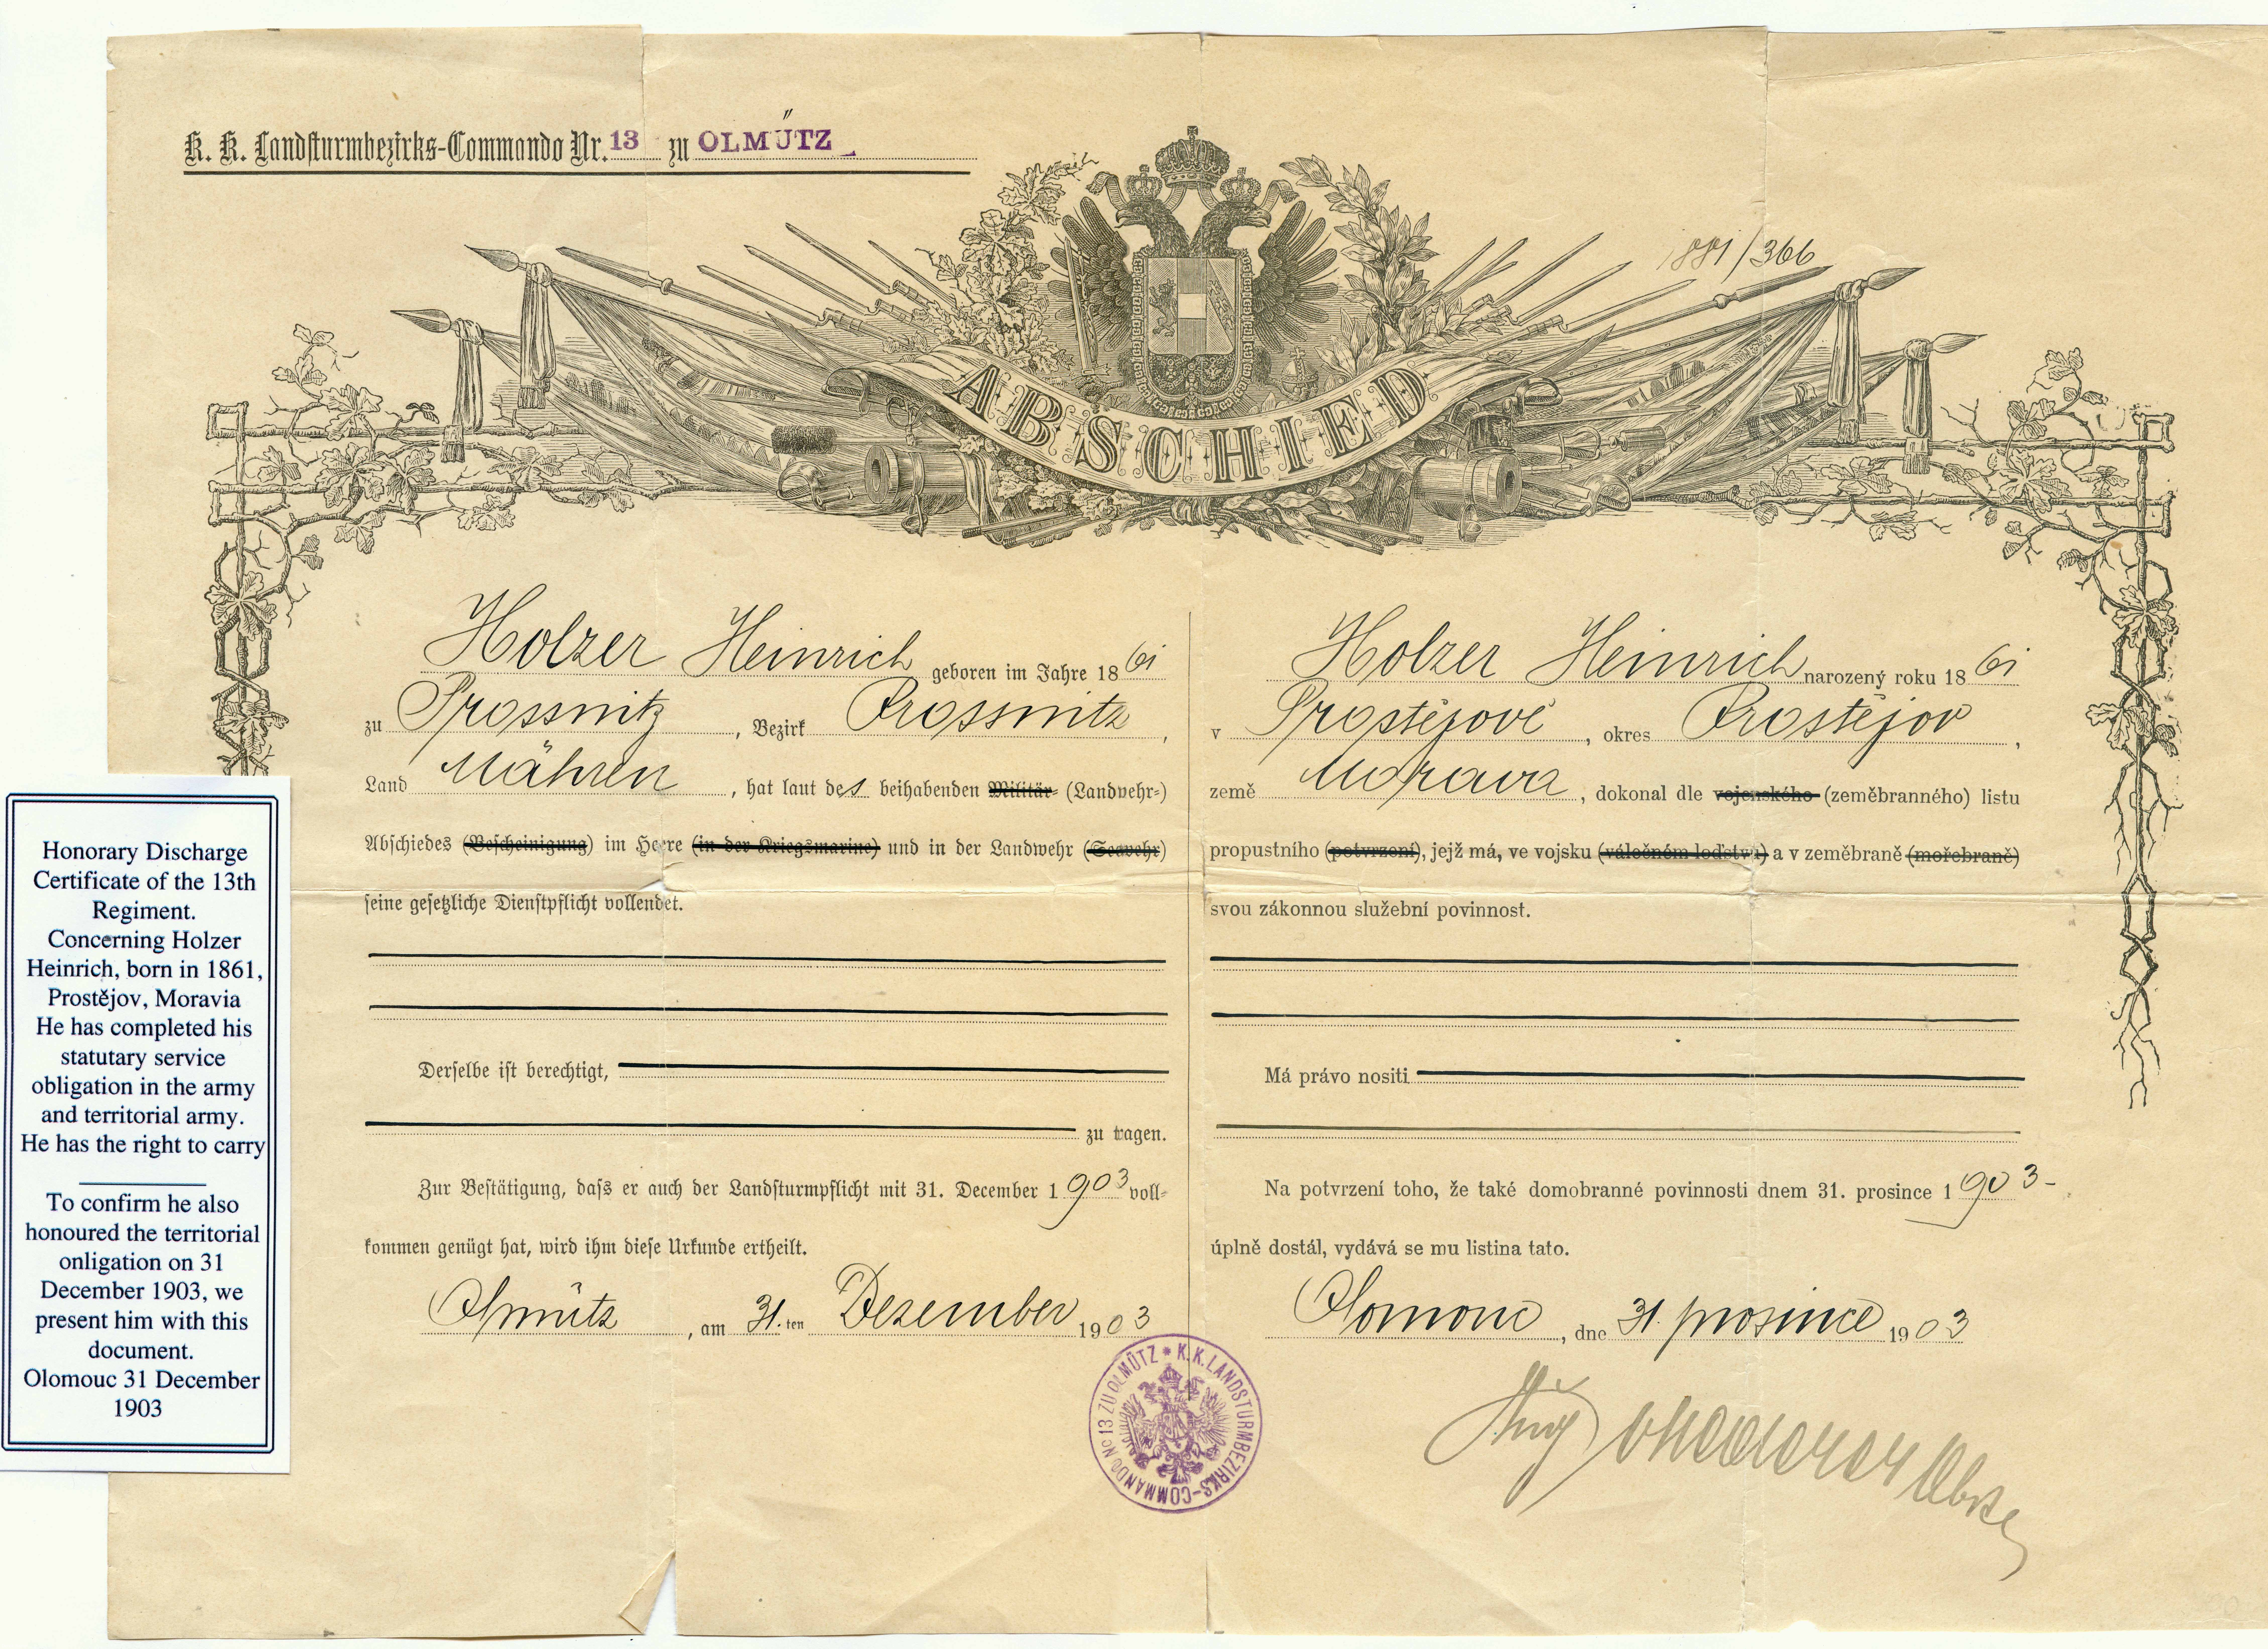 K. K. Landsturmbezirks-Commando Nr. 13 zu OLMÜTZ
1881/366
ABSCHIED
Holzer Heinrich geboren im Jahre 1861
zu Prossnitz, Bezirk Prossnitz,
Land Mähren, hat laut des beihabenden Militär- (Landwehr-)
Abschiedes (Bescheinigung) im Heere (in der Kriegsmarine) und in der Landwehr (Seewehr)
seine gesetzliche Dienstpflicht vollendet.
Derselbe ist berechtigt,
zu tragen.
Zur Bestätigung, dass er auch der Landsturmpflicht mit 31. December 1903 voll-
kommen genügt hat, wird ihm diese Urkunde ertheilt.
Olmütz, am 31.ten Dezember 1903
Holzer Heinrich narozený roku 1861
v Prostějově, okres Prostějov,
země Morava, dokonal dle vojenského (zeměbranného) listu
propustního (potvrzení), jejž má, ve vojsku (válečném loďstvu) a v zeměbraně (mořebraně)
svou zákonnou služební povinnost.
Má právo nositi
Na potvrzení toho, že také domobranné povinnosti dnem 31. prosince 1903-.
úplně dostál, vydává se mu listina tato.
Olomouc, dne 31. prosince 1903
K. K. LANDSTURMBEZIRKS-COMMANDO No 13 ZU OLMÜTZ *
Honorary Discharge
Certificate of the 13th
Regiment.
Concerning Holzer
Heinrich, born in 1861,
Prostějov, Moravia
He has completed his
statutary service
obligation in the army
and territorial army.
He has the right to carry
To confirm he also
honoured the territorial
onligation on 31
December 1903, we
present him with this
document.
Olomouc 31 December
1903